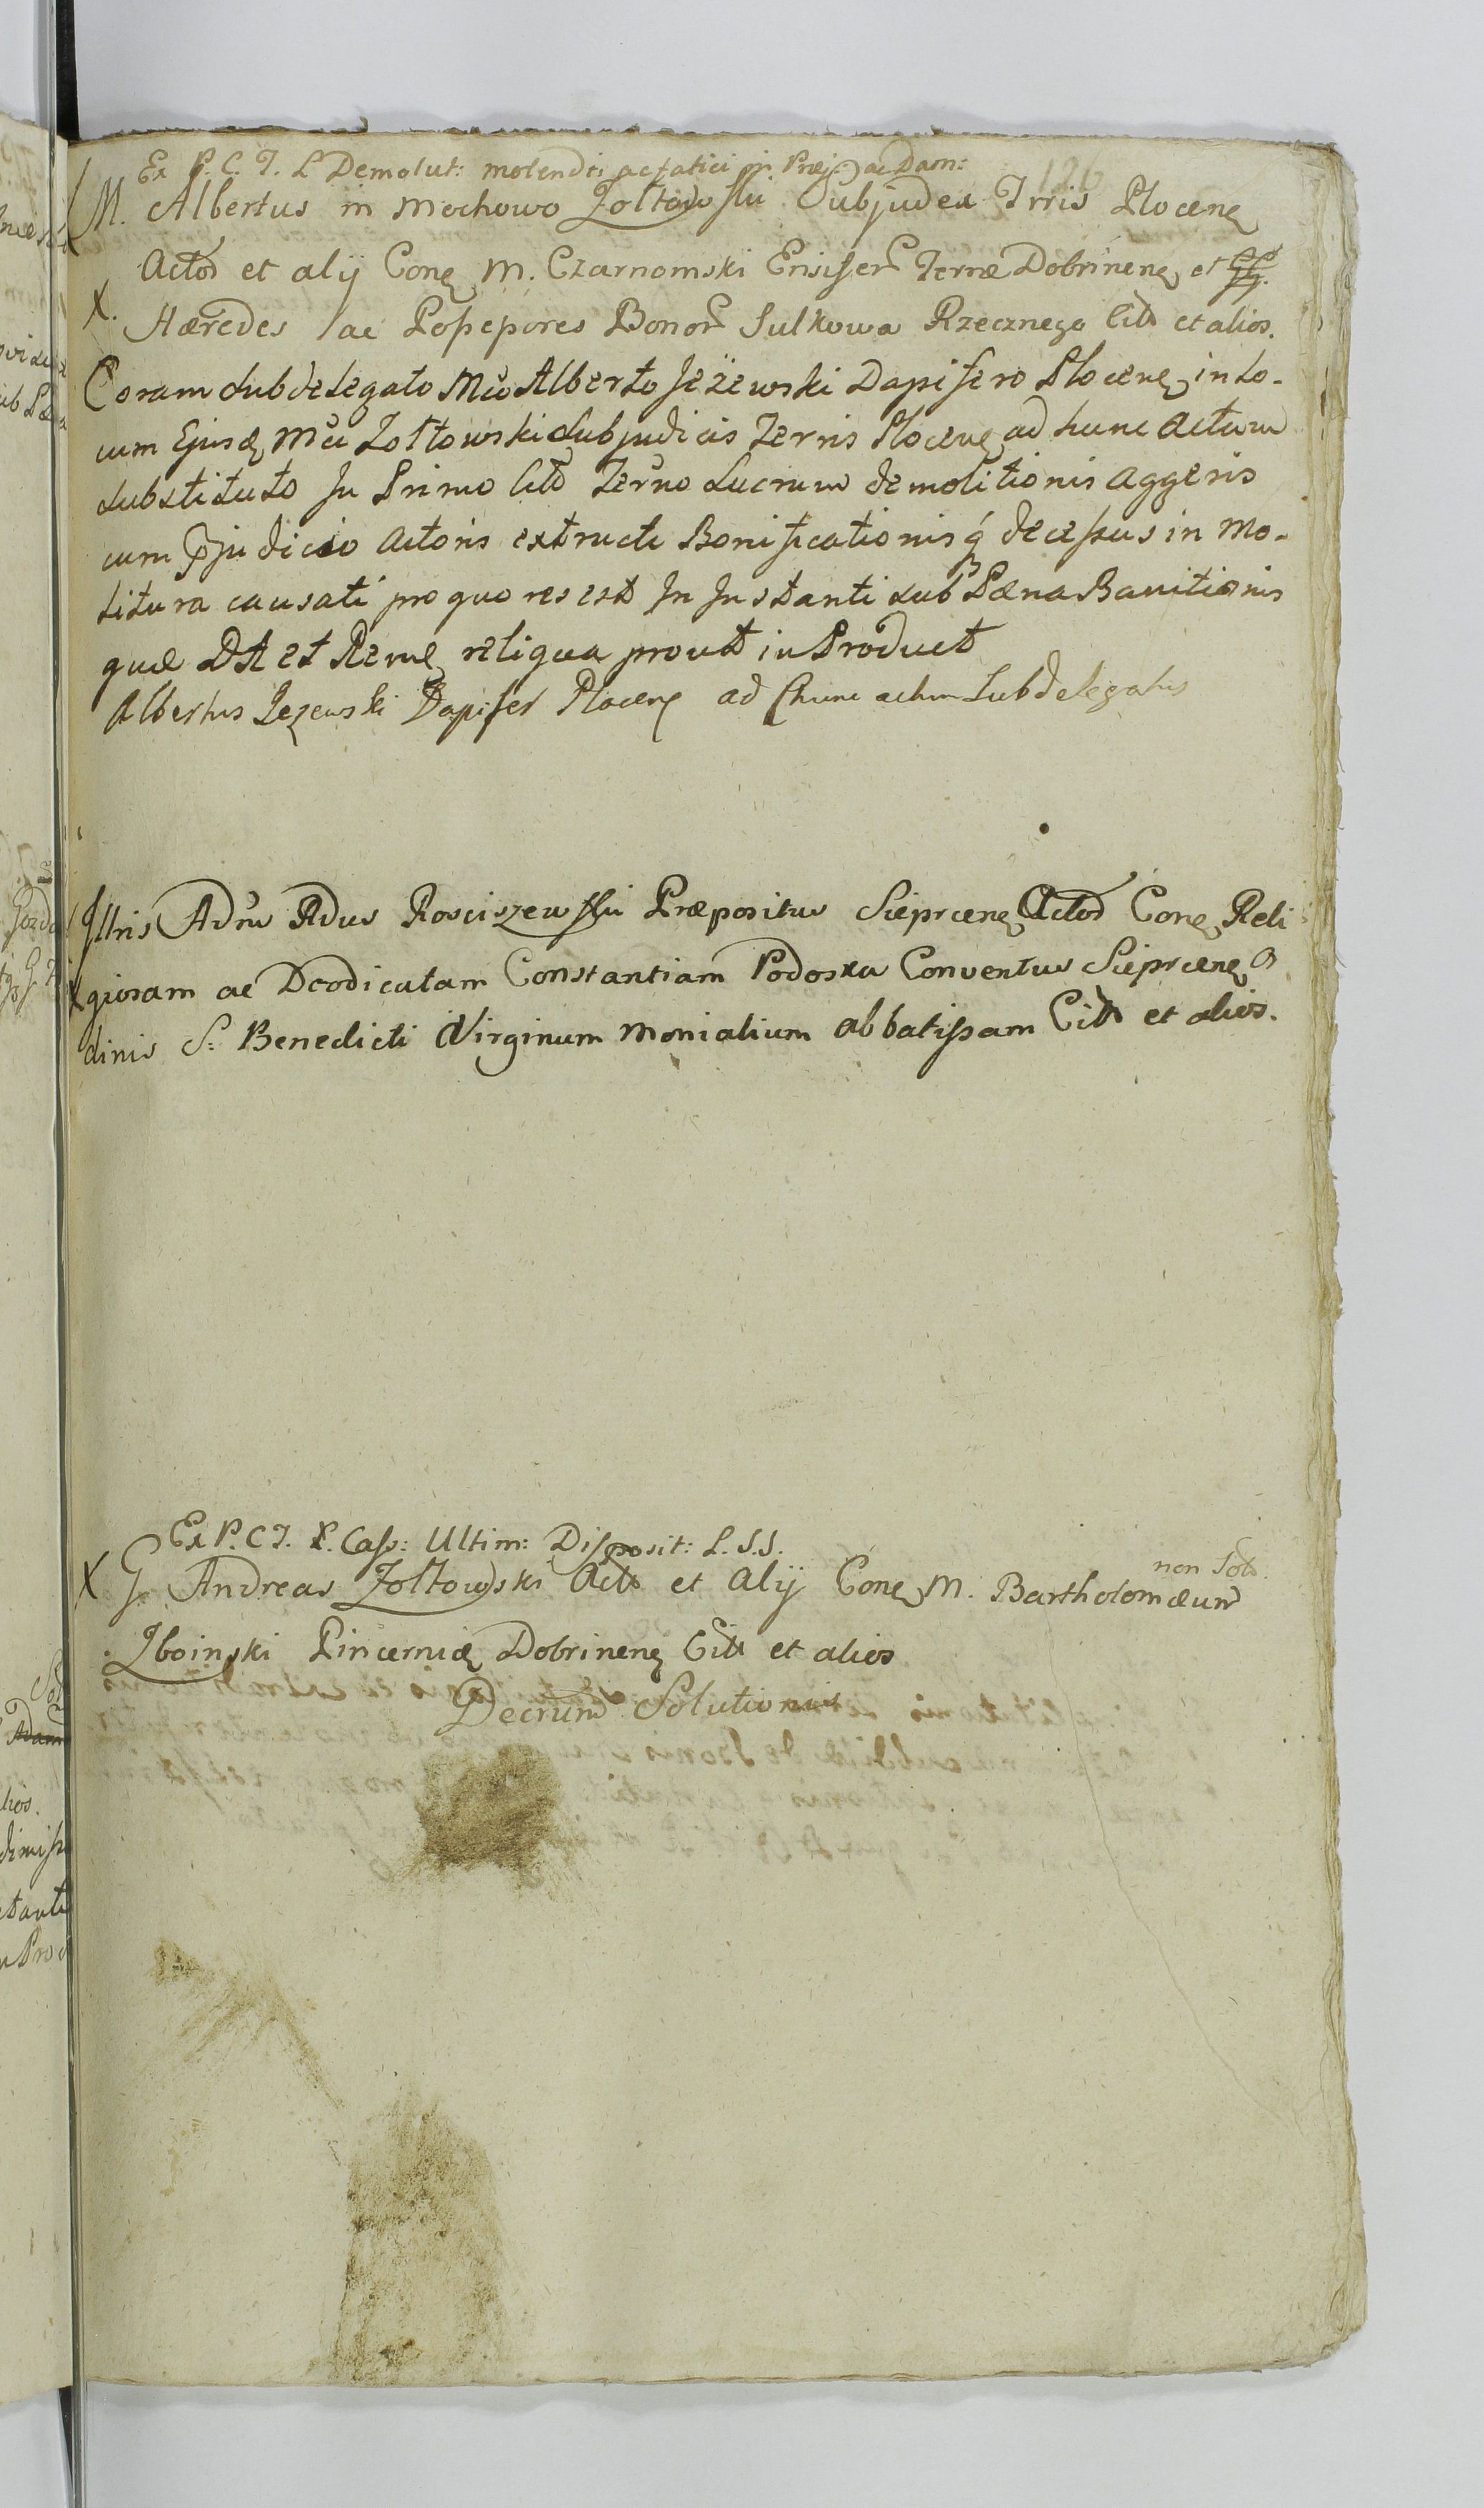 Ex P. C. T. L Demolut: molendi ac Prej: ac Dam:
126
M. Albertus in Mochowo Zołtowski Subjudex Trris Plocen
Actor et alij Con M. Czarnomski Ensifer Terræ Dobrinen et
X. Hæredes ac Possessores Bonor Sulkowa Rzecznego Citt et alios.
Coram Subdelegato Mco Alberto Jeżewski Dapifero Plocen in Lo-
cum Ejusd Mci Zołtowski Subjudicis Terris Plocen ad hunc Actum
Substituto In Primo Citt Terno Lucrum demolitionis Aggeris
cum Pjudicio Actoris extructi Bonificationis q decessus in Mo-
litura causati pro quo res est In Instanti sub Pæna Banitionis
quæ DA et Reme reliqua prout in Product
Albertus Jezewski Dapifer Plocen ad Chunc actum Subdelegatus
Illris Adru Rdus Rosciszewski Præpositus Sieprcen Actor Con Reli
X giosam ac Deodicatam Constantiam Podoska Conventus Sieprcen O
dinis S: Benedicti Virginum Monialium Abbatissam Citt et alios.
Ex P. C T. P. Cass: Ultim: Disposit: L. S. S.
X G. Andreas Zołtowski Actt et Alij Con M. Bartholomæum
non Sol
Zboinski Pincernid Dobrinen Citt et alios
Decrum Solutionis